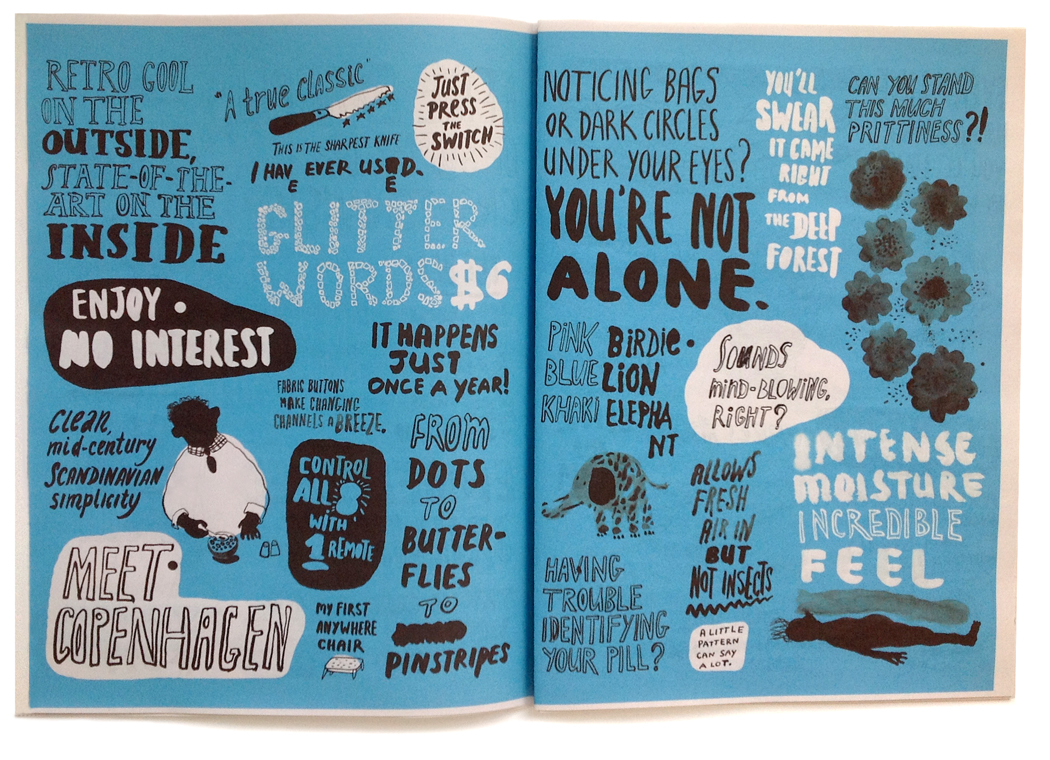 RETRO COOL
ON THE
OUTSIDE,
STATE-OF-THE-
ART ON THE
INSIDE
"A true classic"
THIS IS THE SHARPEST KNIFE
I HAV EVER USED.
E E
JUST
PRESS
THE
SWITCH
GLITTER
WORDS $6
ENJOY •
NO INTEREST
IT HAPPENS
JUST
ONCE A YEAR!
FABRIC BUTTONS
MAKE CHANGING
CHANNELS A BREEZE.
Clean,
mid-century
SCANDINAVIAN
simplicity
CONTROL
ALL 8
WITH
1 REMOTE
FROM
DOTS
TO
BUTTER-
FLIES
TO
PINSTRIPES
MEET •
COPENHAGEN
MY FIRST
ANYWHERE
CHAIR
NOTICING BAGS
OR DARK CIRCLES
UNDER YOUR EYES?
YOU'RE NOT
ALONE.
YOU'LL
SWEAR
IT CAME
RIGHT
FROM
THE DEEP
FOREST
CAN YOU STAND
THIS MUCH
PRITTINESS?!
PINK BIRDIE •
BLUE LION
KHAKI ELEPHA
NT
SOUNDS
MIND-BLOWING,
RIGHT?
ALLOWS
FRESH
AIR IN
BUT
NOT INSECTS
INTENSE
MOISTURE
INCREDIBLE
FEEL
HAVING
TROUBLE
IDENTIFYING
YOUR PILL?
A LITTLE
PATTERN
CAN SAY
A LOT.